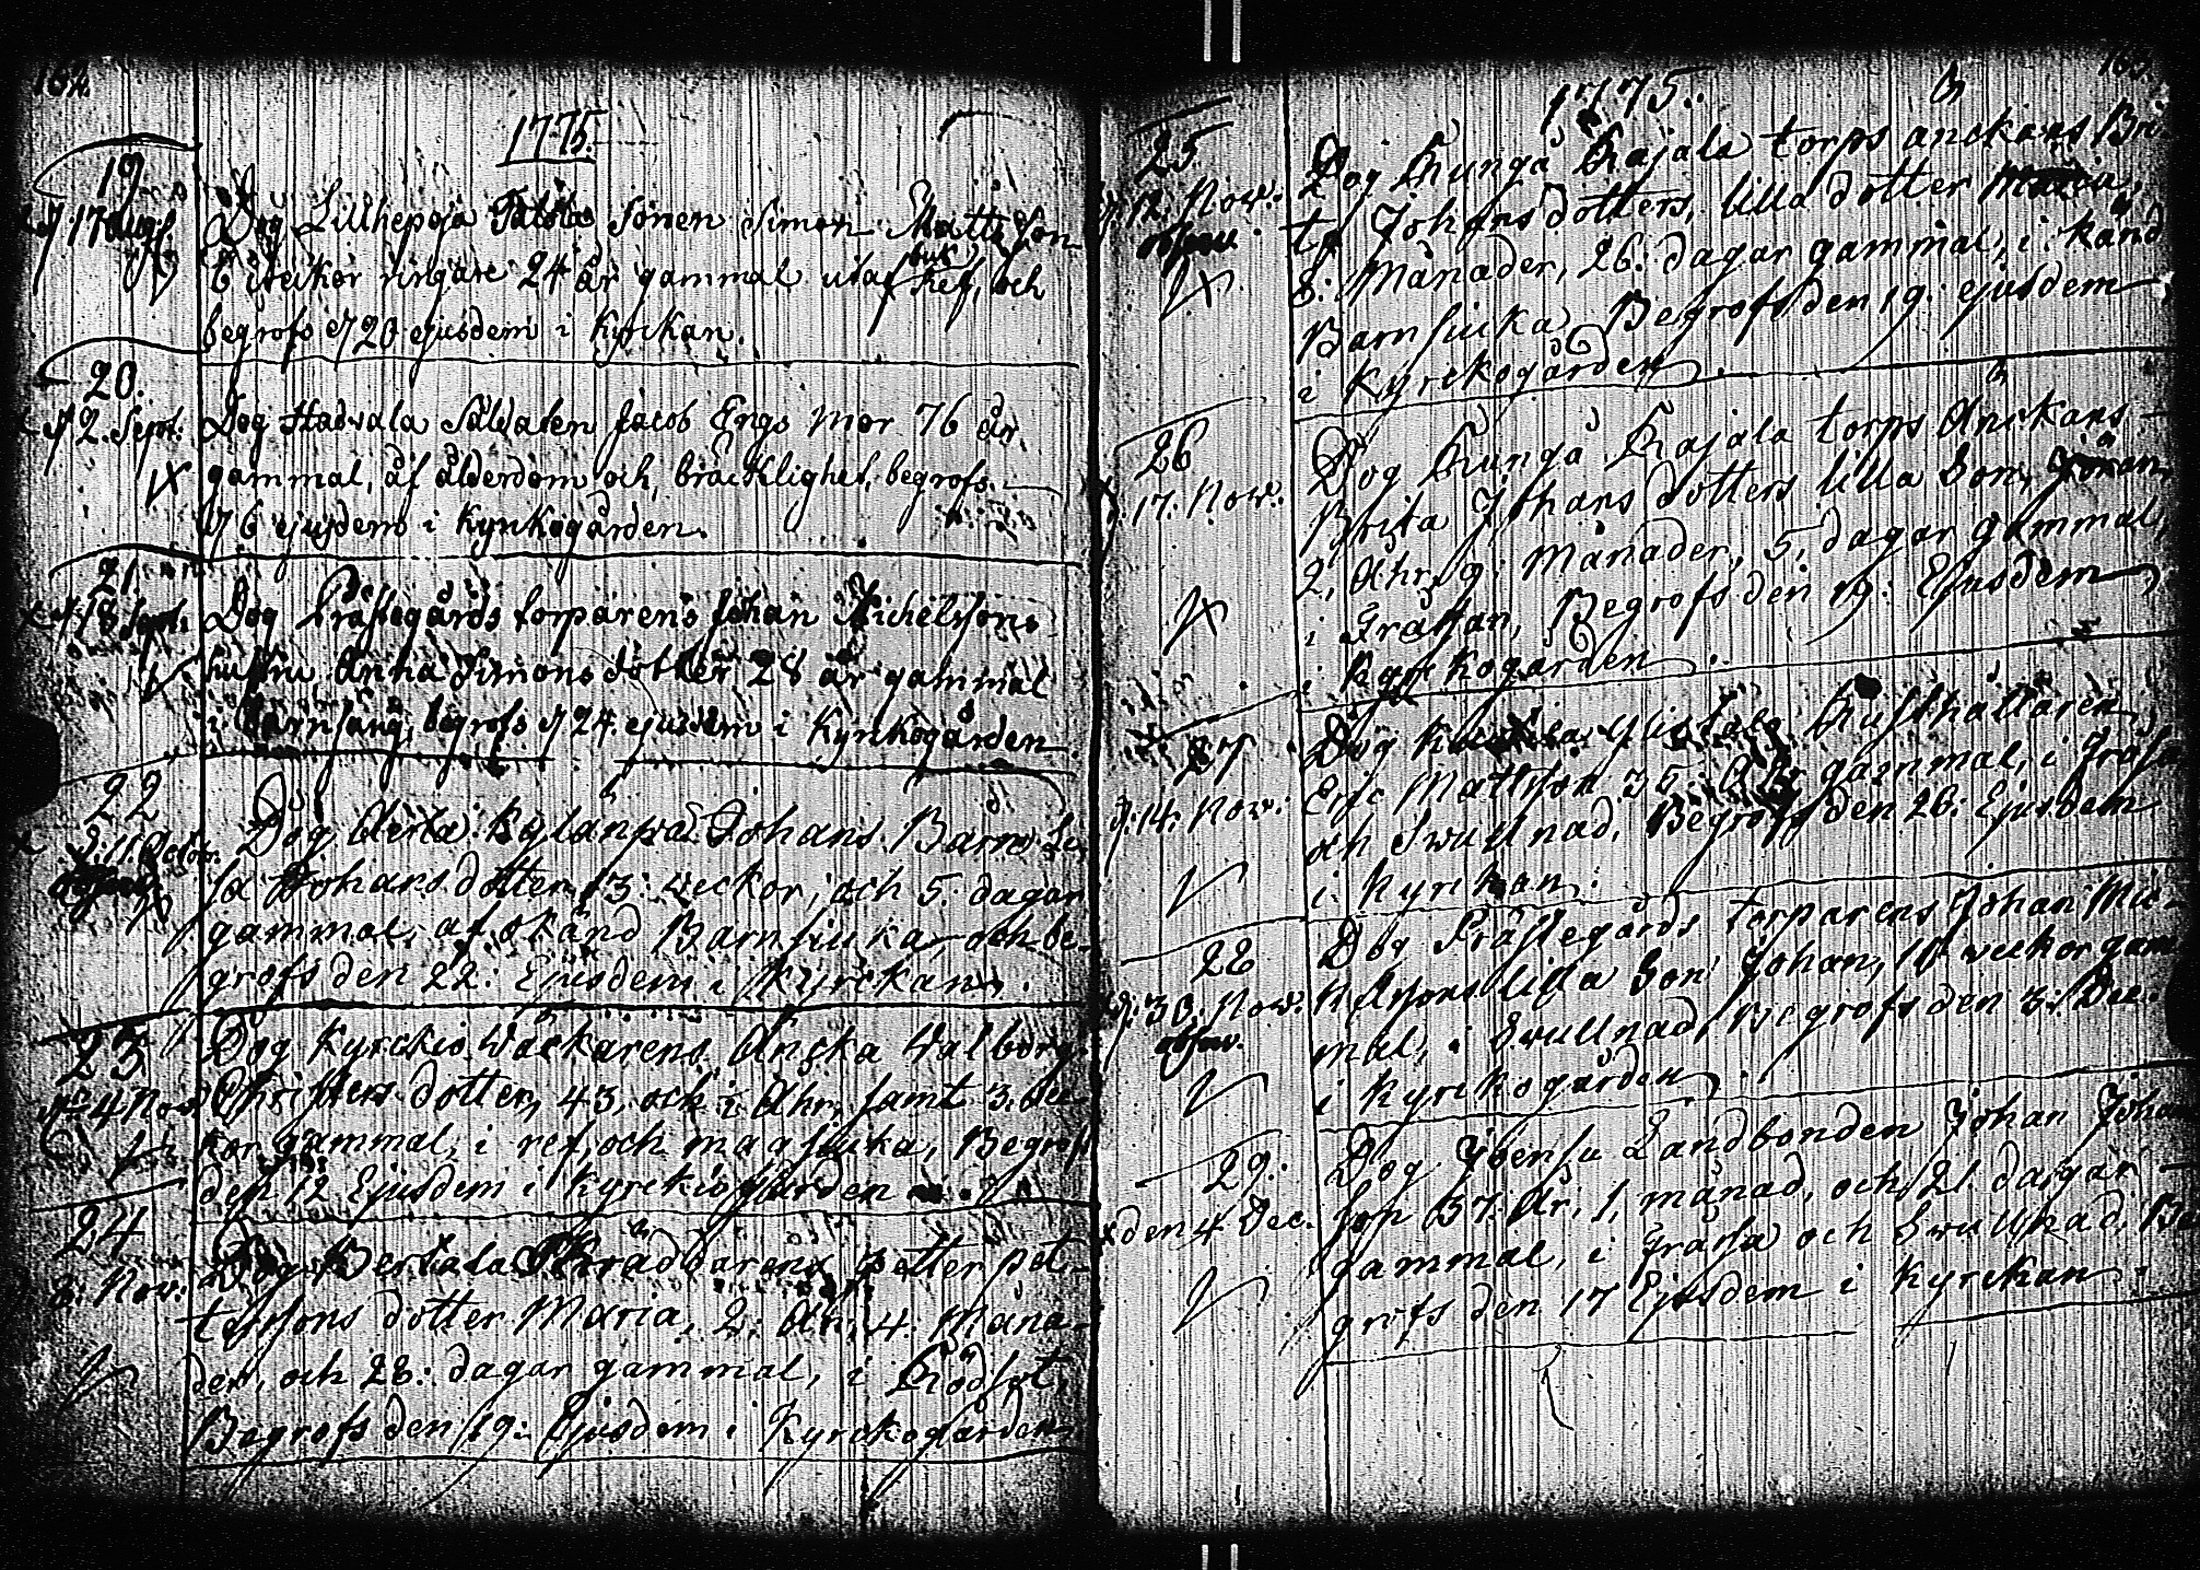 162.
1775.
19
d 17 Aug.
Dog Lillhepoja Talola Sonen Simon Matts Son
6 weckor ringare 24 år gammal utaf buk ref, och
begrofs d 20 ejusdem i Kyrckan.
20.
d 2. Sept.
Dog Hadvala Saldaten Jacob Engs Mor 76 år
gammal, af ålderdom och bräcklighet, begrofs
d 6 ejusdem i Kyrkogården.
21
d 18 Sept.
Dog Prästegårds torparens Johan Michelssons
hustru Anna Simons dotter 28 år gammal
i Barnsäng, begrofs d 24 ejusdem i Kyrkogården
22
Dog Kylänpä Johans Barn
Johans dotter, 13: weckor, och 5. dagar
gammal, af okänd Barn siuka, och be-
grofs den 22: Ejusdem i Kyrckan.
23
d 4 Nov.
Dog Kyrckio Wäckarens Ancka Walborg
Christers dotter, 43, och i Åhr, samt 3. wec-
kor gammal, i ref, och magsiuka, Begrofs
den 12 Ejusdem i Kyrckiogården
24
8. Nov:
Dog Bertala Skräddarens Petter Pet-
terssons dotter Maria, 2: Åhr, 4: Måna-
der, och 28: dagar gammal, i Rödsot,
Begrofs den 19: Ejusdem i Kyrckogården
163.
1775.
25
d 12. Nov.
Dog Kunga Rajala torps anckans Bri-
ta Johans dotters, lilla dotter Maria,
8: Månader, 26: dagar gammal, i: känd
Barnsiuka, Begrofs den 19: ejusdem
i Kyrckogården.
26
d. 17. Nov.
Dog Kunga Rajala torps Anckans
Brita Johans dotters lilla Son, Göran,
2, Åhr, 9: Månader, 5, dagar gammal,
i Frässan, Begrofs den 19: Ejusdem
i Kyrckogården.
27
d. 14. Nov:
Dog Rusthållaren
Eric Mattsson 35: Åhr gammal, i Fråssa
och Swullnad, Begrofs den 26: Ejusdem
i Kyrckan.
28
d: 30. Nov.
Dog Prästegårds torparens Johan Mic-
kelssons lilla Son Johan, 10 weckor gam
mal, i Swullnad, Begrofs den 3: Dec.
i Kyrckogården.
29.
den 4 Dec.
Dog Landbonden Johan Johan
son 37: År, 1, månad, och 21 dagar
gammal, i Fråssa och Swullnad, Be
grofs den 17 Ejusdem i Kyrckan.